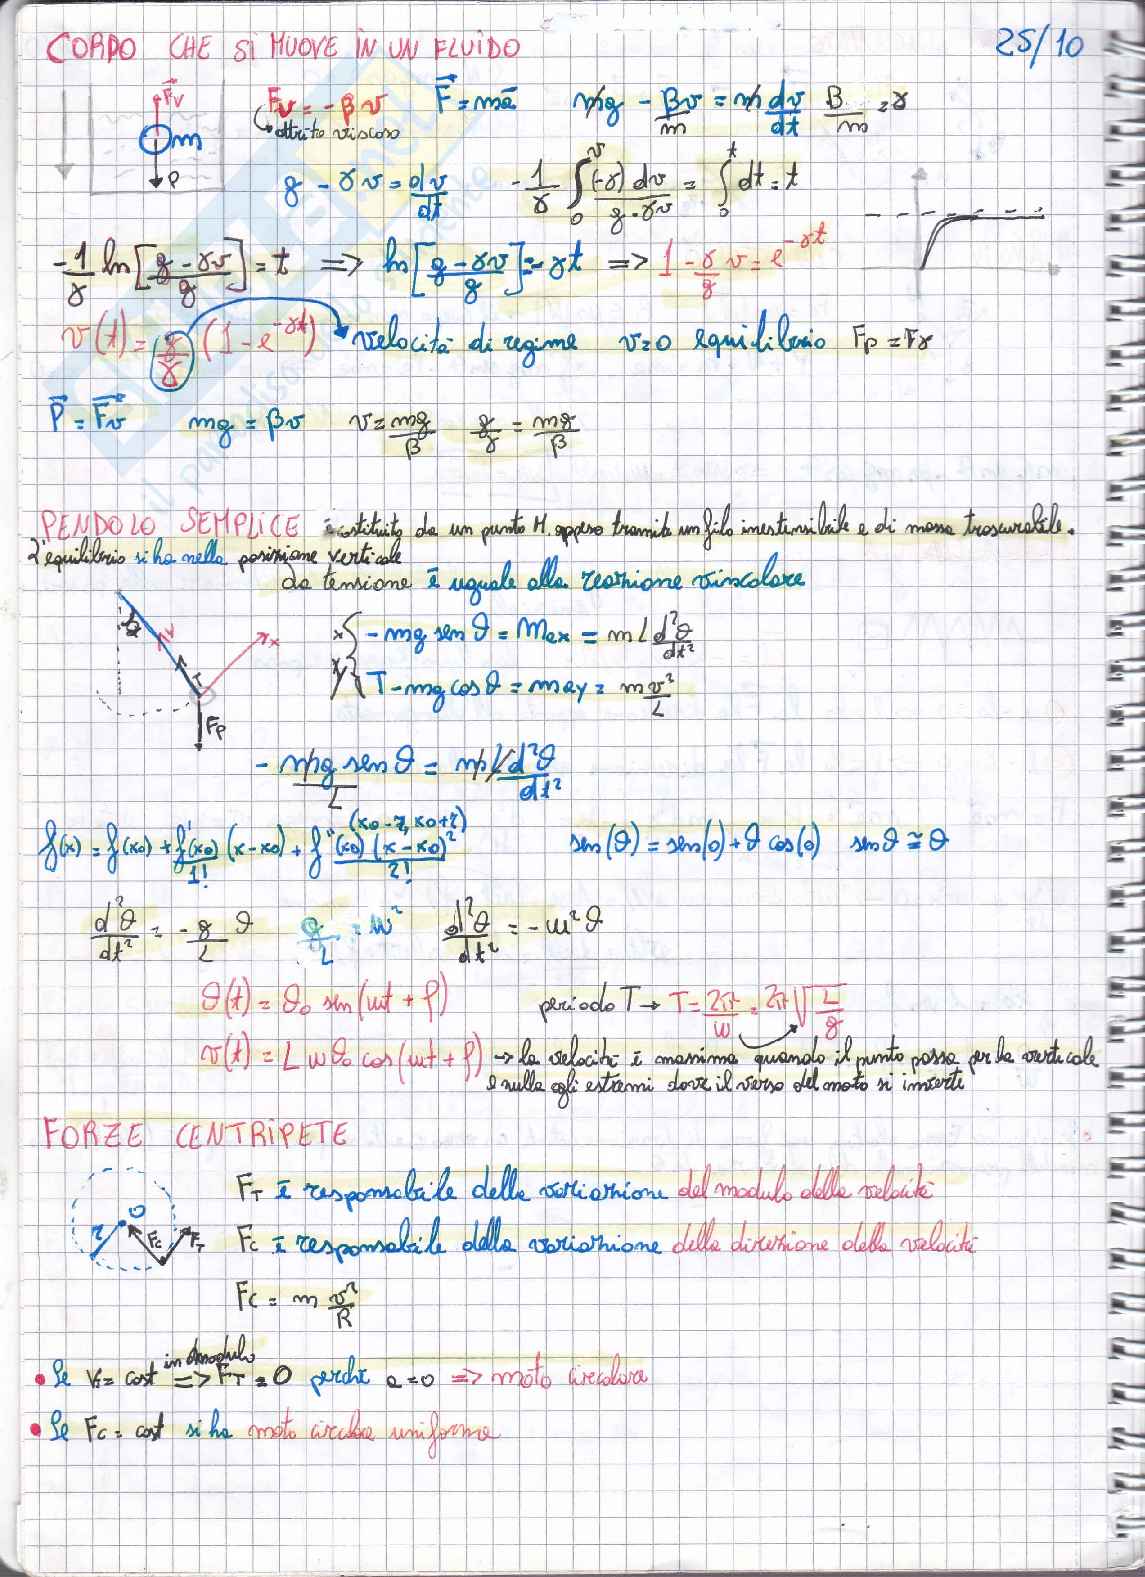 CORPO CHE SI MUOVE IN UN FLUIDO 25/10
Fv = -βv F⃗ = ma⃗ mg - βv/m = m dv/dt β/m = γ
attrito viscoso
Fv
m
P
g - γv = dv/dt -1/γ ∫₀ᵛ (-γ) dv/(g-γv) = ∫₀ᵗ dt = t
-1/γ ln[(g-γv)/g] = t => ln[(g-γv)/g] = -γt => 1 - γ/g v = e^(-γt)
v(t) = g/γ (1 - e^(-γt)) velocità di regime v=0 equilibrio Fp = Fγ
P⃗ = F⃗v mg = βv v = mg/β g/γ = mg/β
PENDOLO SEMPLICE è costituito da un punto M. appeso tramite un filo inestensibile e di massa trascurabile.
L'equilibrio si ha nella posizione verticale
La tensione è uguale alla reazione vincolare
x { -mg sen ϑ = Max = mL d²ϑ/dt²
y { T - mg cos ϑ = may = m v²/L
T
x
Fp
- mg sen ϑ/L = mL d²ϑ/dt²
(x₀-r, x₀+r)
f(x) = f(x₀) + f'(x₀)/1! (x-x₀) + f''(x₀)(x-x₀)²/2! sen(ϑ) = sen(0) + ϑ cos(0) senϑ ≅ ϑ
d²ϑ/dt² = -g/L ϑ g/L = ω² d²ϑ/dt² = -ω²ϑ
ϑ(t) = ϑ₀ sen(ωt + φ) periodo T → T = 2π/ω = 2π√(L/g)
v(t) = Lωϑ₀ cos(ωt + φ) → la velocità è massima quando il punto passa per la verticale
e nulla agli estremi dove il verso del moto si inverte
FORZE CENTRIPETE
O r Fc FT
FT è responsabile della variazione del modulo della velocità
Fc è responsabile della variazione della direzione della velocità
Fc = m v²/R
in modulo
• Se v = cost => FT = 0 perché a=0 => moto circolare
• Se Fc = cost si ha moto circolare uniforme